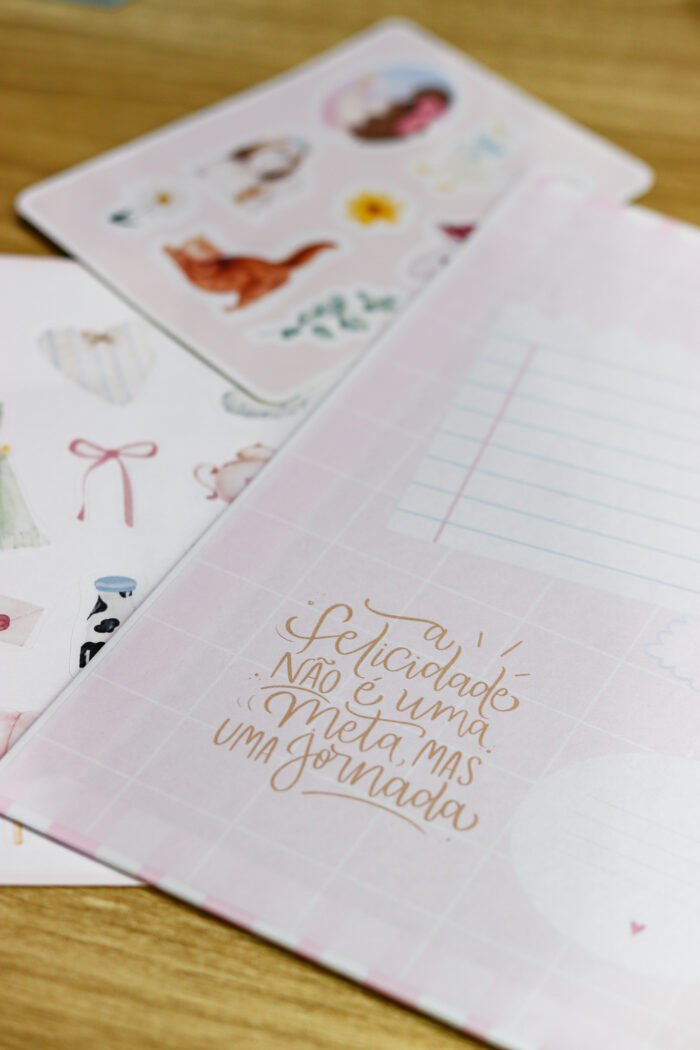 a
felicidade
NÃO é uma
meta, MAS
UMA jornada